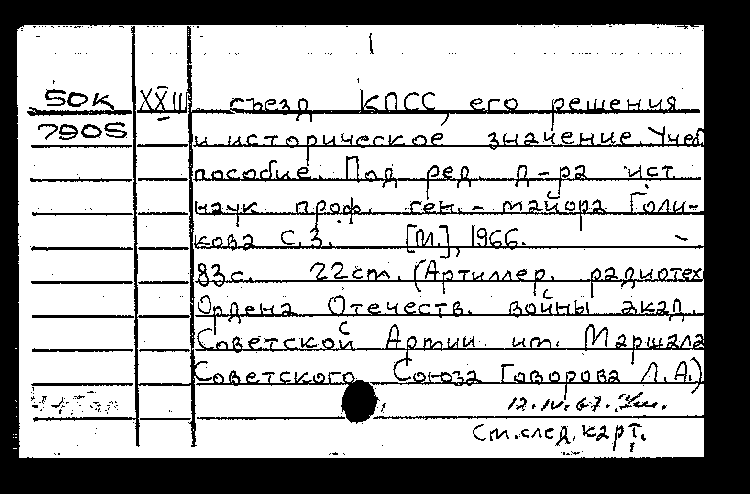 1
50К XXIII съезд КПСС, его решения
7905 и историческое значение. Учеб.
пособие. Под ред. д-ра ист.
наук проф. ген.-майора Голи-
кова С.З. [М.], 1966.
83с. 22см. (Артиллер. радиотех
Ордена Отечеств. войны акад.
Советской Армии им. Маршала
Советского Союза Говорова Л.А.)
12.IV.67.
См. след. карт.